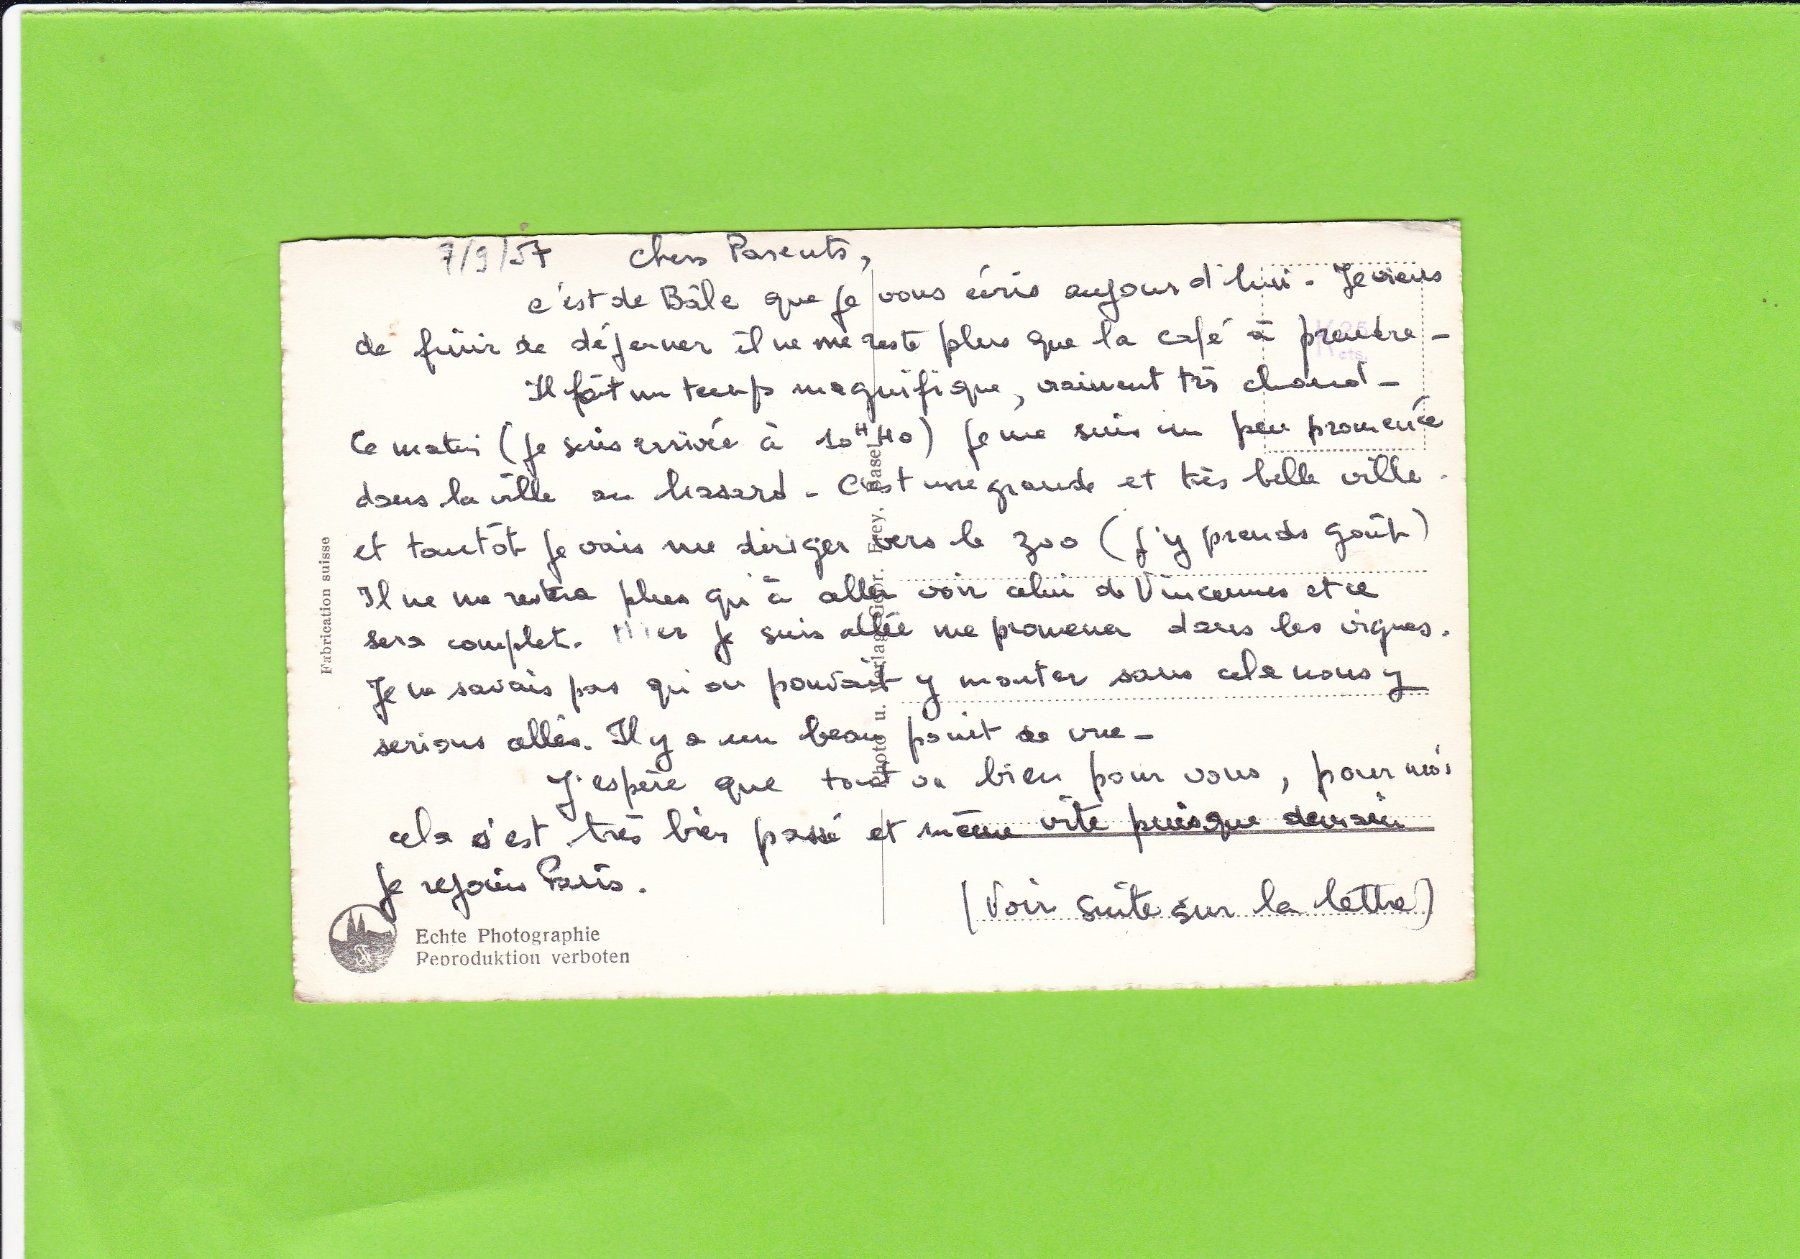 7/9/57 Chers Parents,
c'est de Bâle que je vous écris aujourd'hui. Je viens
de finir de déjeuner il ne me reste plus que la café à prendre -
Il fait un temps magnifique, vraiment très chaud -
Ce matin (je suis arrivée à 10H40) je me suis un peu promenée
dans la ville au hasard - C'est une grande et très belle ville.
et tantôt je vais me diriger vers le zoo (j'y prends goût)
Il ne me restera plus qu'à aller voir celui de Vincennes et ce
sera complet. Hier je suis allée me promener dans les vignes.
Je ne savais pas qu'on pouvait y monter sans cela nous y
serions allés. Il y a un beau point de vue -
J'espère que tout va bien pour vous, pour moi
cela s'est très bien passé et même vite puisque demain
je rejoins Paris.
(Voir suite sur la lettre)
Echte Photographie
Reproduktion verboten
Fabrication suisse
Photo u. Verlag Gebr. Frey, Basel
25
cts.